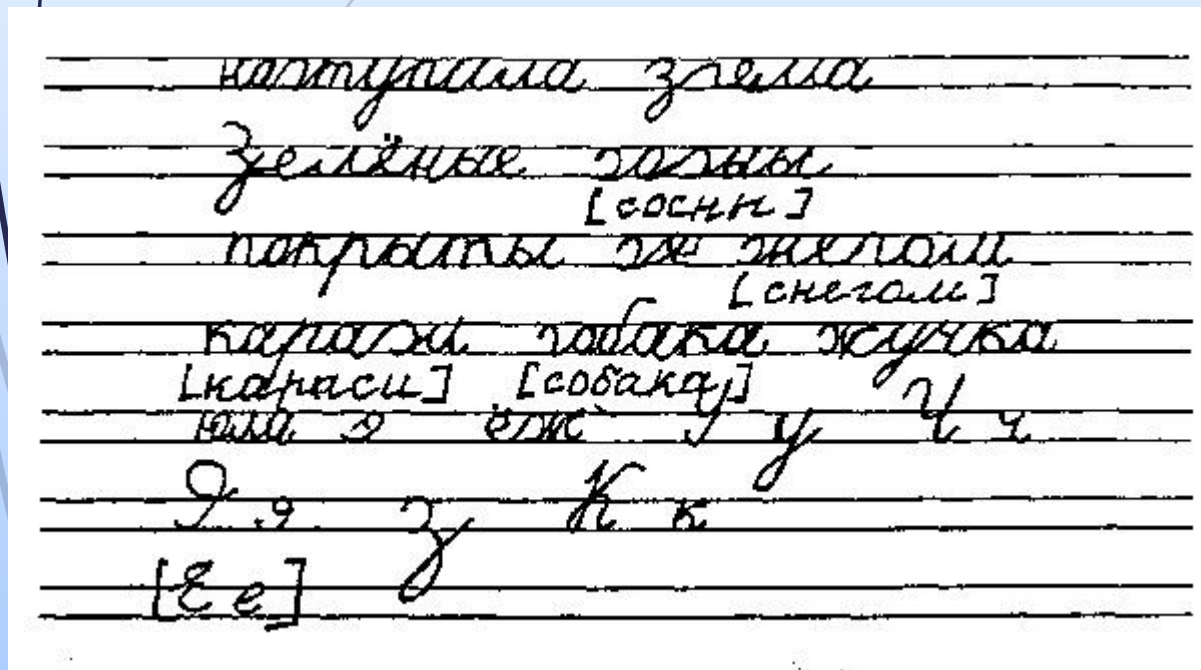 наступила
зелёные сосны
[сосны]
покрыты снегом
[снегом]
караси собака жучка
[караси] [собака]
юла я ёж У у Ч ч
Я я з К к
[Е е]